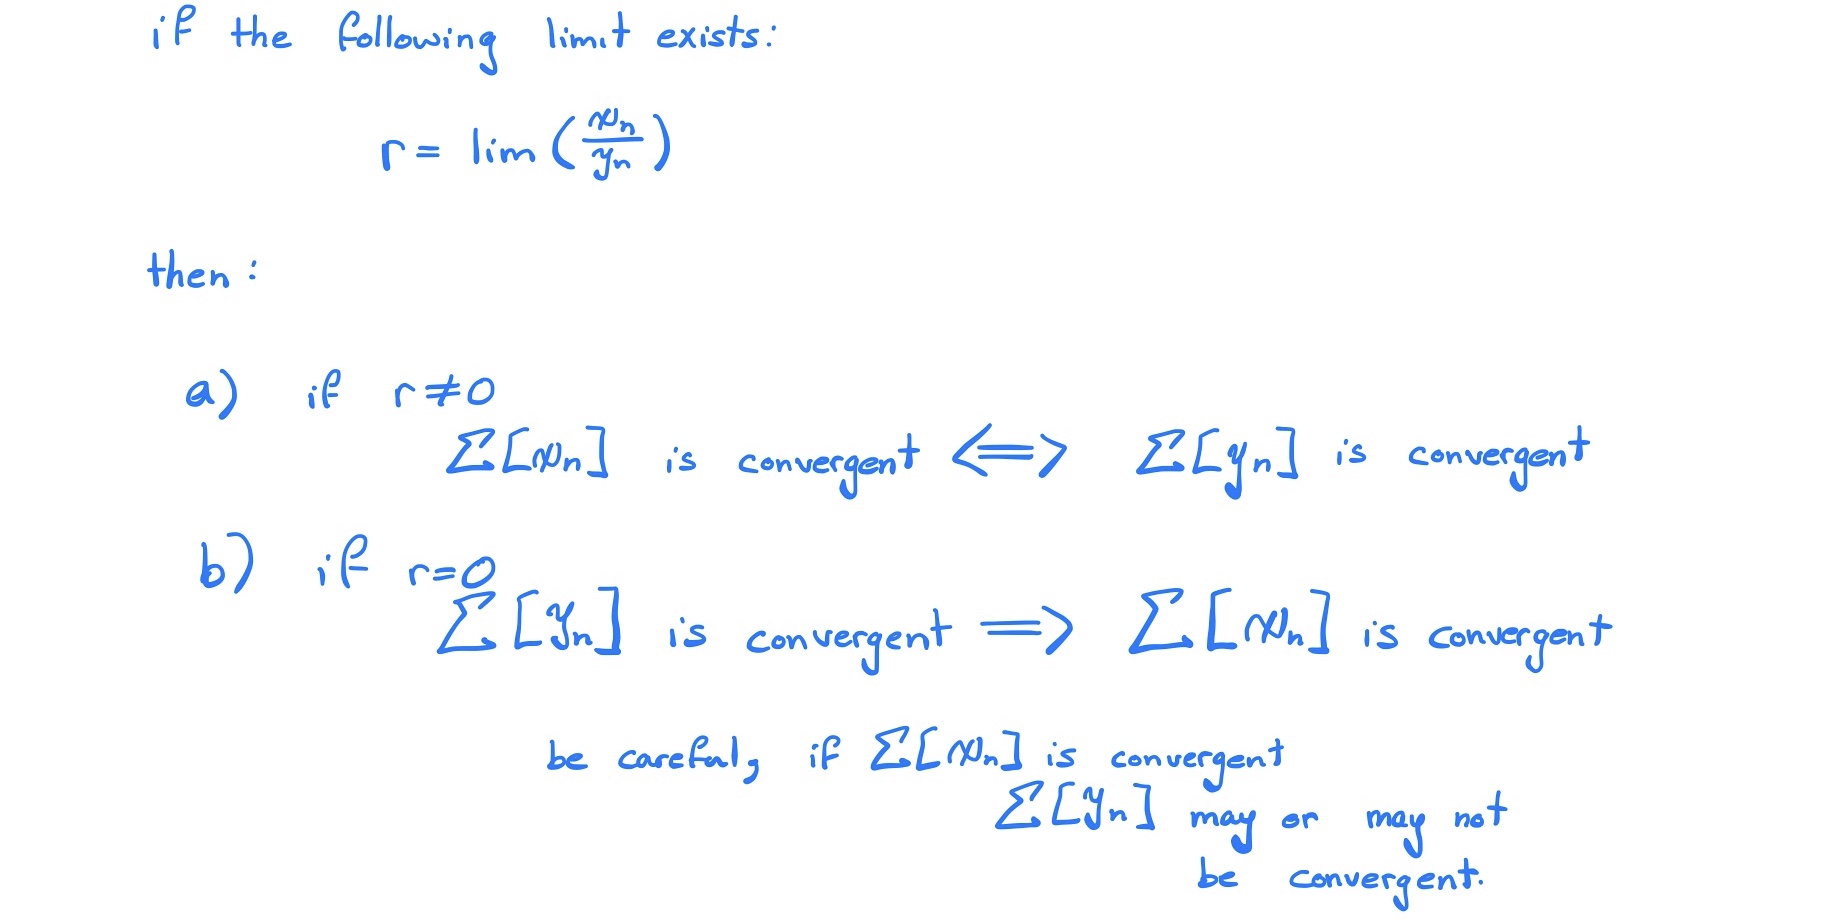 if the following limit exists:
r = lim (xn/yn)
then:
a) if r≠0
Σ[xn] is convergent ⟺ Σ[yn] is convergent
b) if r=0
Σ[yn] is convergent ⟹ Σ[xn] is convergent
be careful, if Σ[xn] is convergent
Σ[yn] may or may not
be convergent.